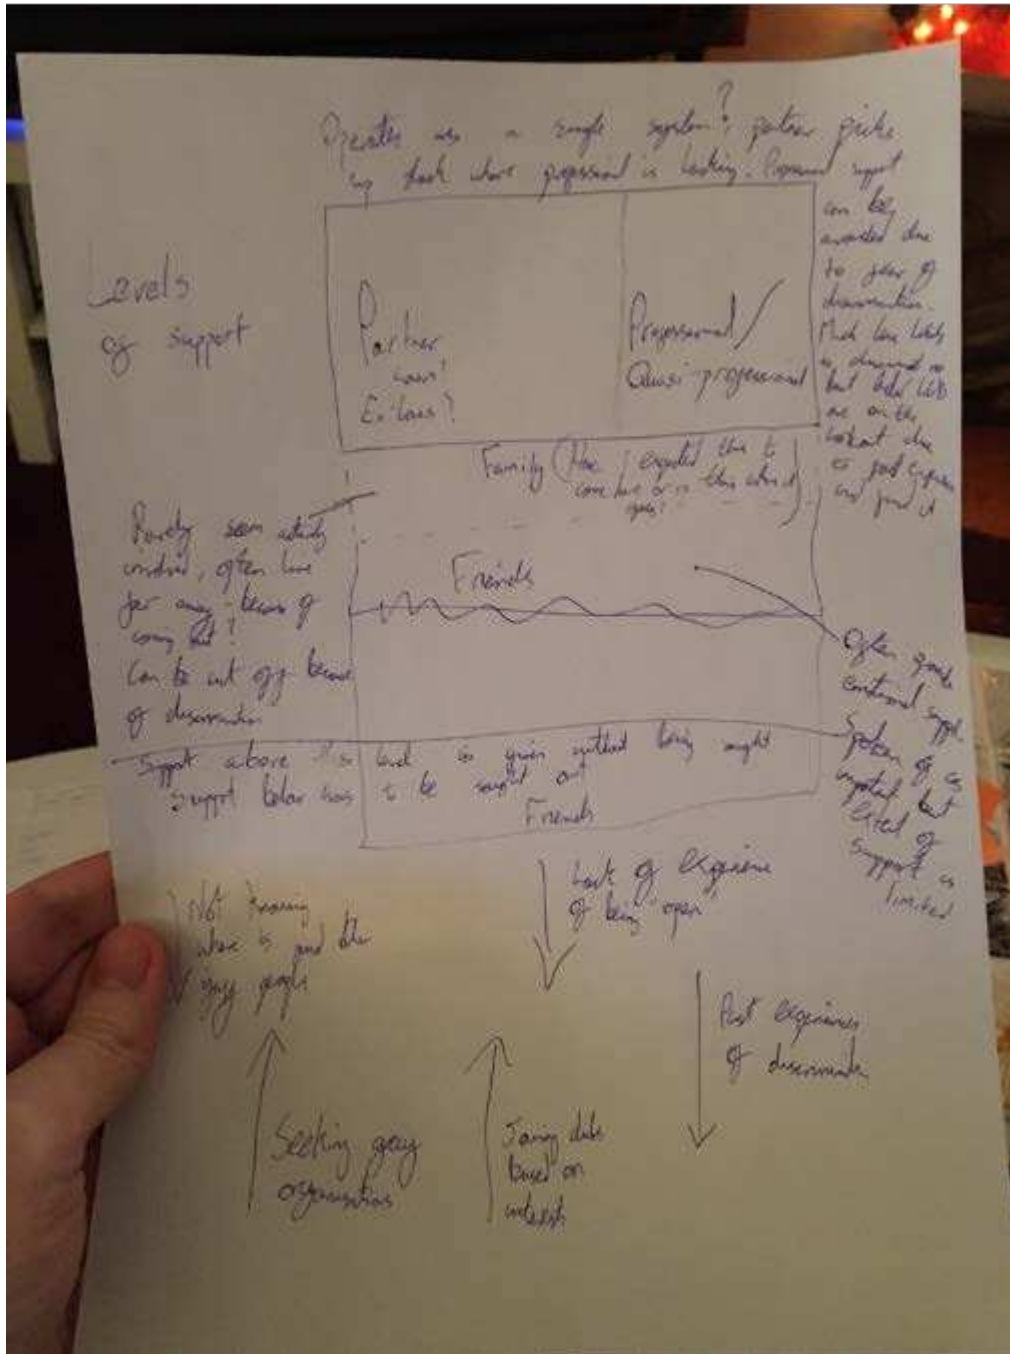 Operates as a single system? partner picks
up slack where professional is lacking. Professional support
can be
avoided due
to fear of
discrimination.
is
but
are on the
lookout due
to past experiences
and find it
Levels
of support
Partner
Professional/
Quasi-professional
Family (How I expected this to
come here or is this where it
goes?
Rarely seen actively
involved, often live
far away - because of
coming out?
Can be cut off because
of discrimination
Friends
Often quite
conditional support.
Spoken of as
important but
level of
support is
limited
Support above this level is given without being sought
Support below has to be sought out
Friends
Lack of experience
of being "open"
Not knowing
where to find other
gay people
Past experiences
of discrimination
Seeking gay
organisations
Joining clubs
based on
interests